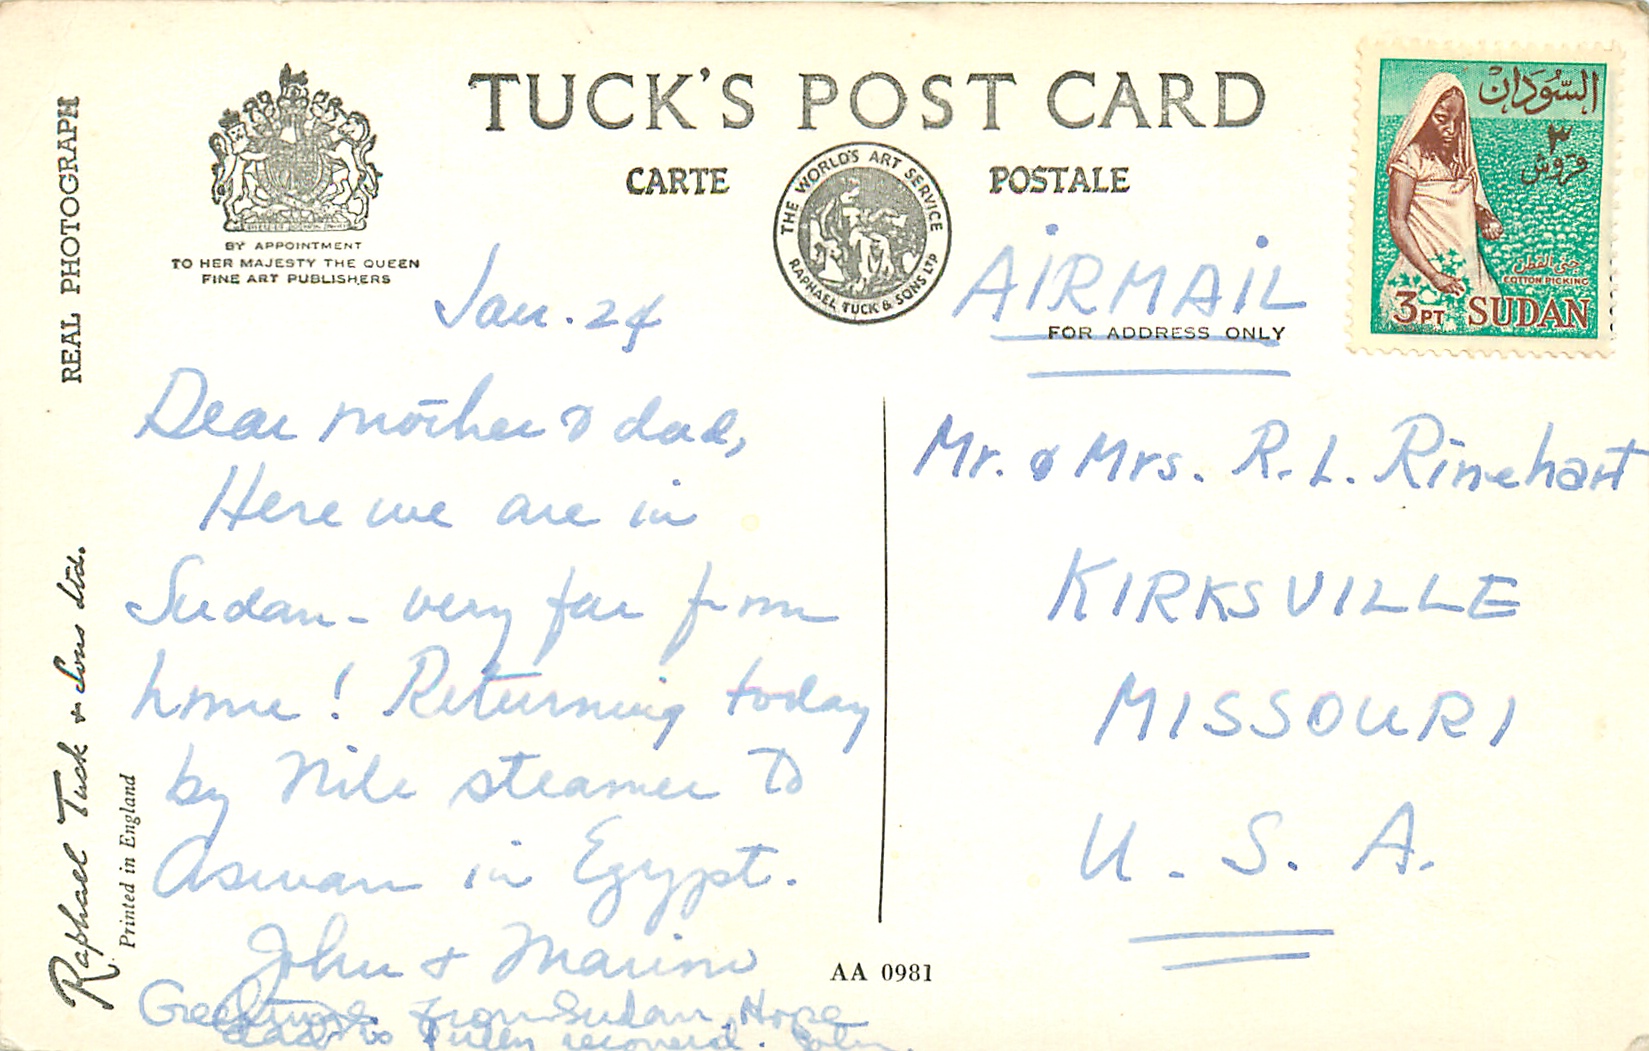 TUCK'S POST CARD
CARTE POSTALE
BY APPOINTMENT
TO HER MAJESTY THE QUEEN
FINE ART PUBLISHERS
THE WORLD'S ART SERVICE
RAPHAEL TUCK & SONS LTD
REAL PHOTOGRAPH
Raphael Tuck & Sons Ltd.
Printed in England
Jan. 24
Dear mother & dad,
Here we are in
Sudan - very far from
home! Returning today
by Nile steamer to
Aswan in Egypt.
John +
Greetings from Sudan. Hope
dad is fully recovered. John
AIRMAIL
FOR ADDRESS ONLY
Mr. & Mrs. R. L. Rinehart
KIRKSVILLE
MISSOURI
U. S. A.
AA 0981
السّودَان
٣
قروش
جنى القطن
COTTON PICKING
3 PT SUDAN